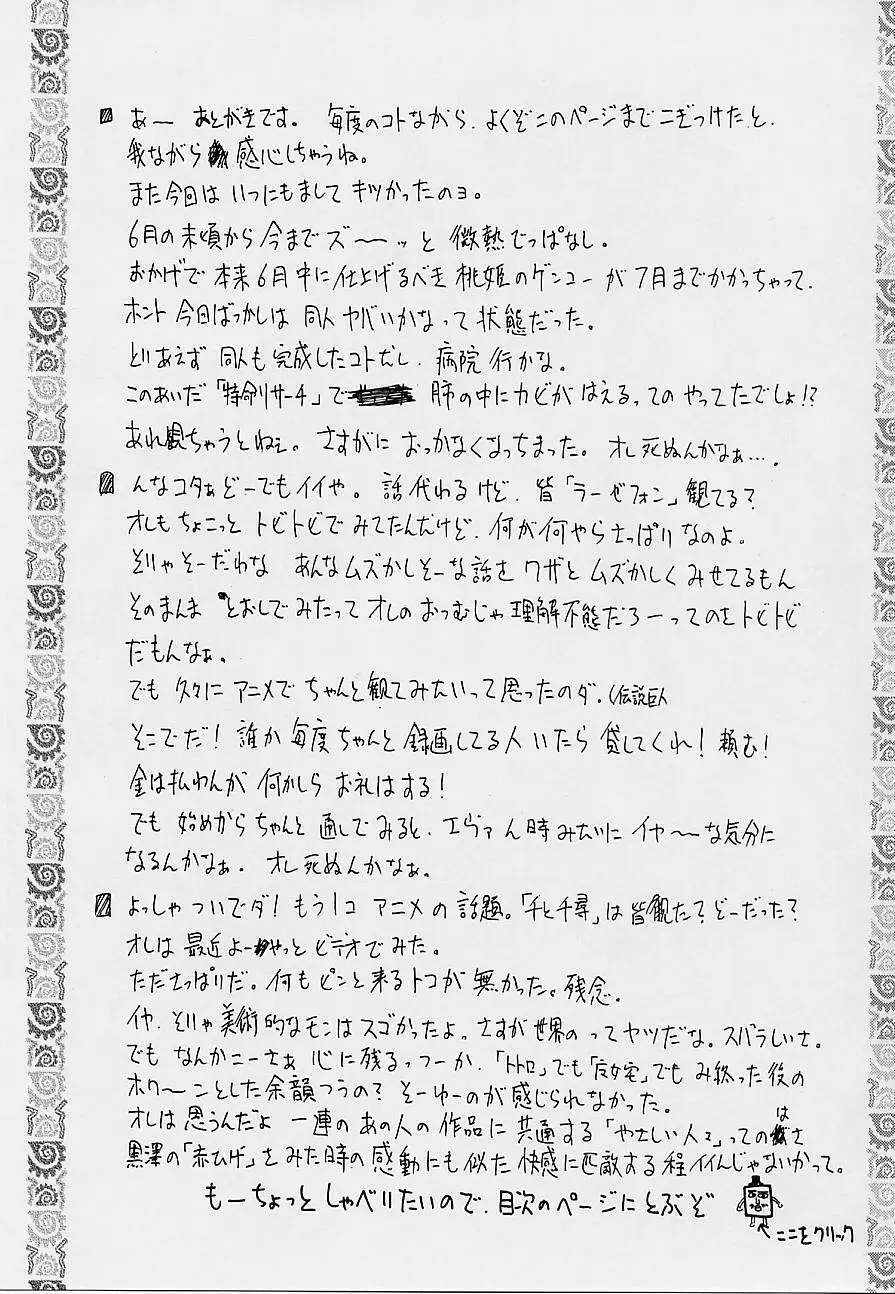 あー あとがきです。 毎度のコトながら、よくぞこのページまでこぎつけたと、
我ながら感心しちゃうね。
また今回はいつにもましてキツかったのヨ。
6月の末頃から今までズ〜〜ッと 微熱でっぱなし。
おかげで本来6月中に仕上げるべき桃姫のゲンコーが7月までかかっちゃって、
ホント今回ばっかしは 同人ヤバいかなって状態だった。
とりあえず 同人も完成したコトだし、病院行かな。
このあいだ「特命リサーチ」で 肺の中にカビがはえるってのやってたでしょ!?
あれ観ちゃうとねェ。さすがにおっかなくなっちまった。オレ死ぬんかなぁ…．
んなコタぁどーでもイイや。話代わるけど、皆「ラーゼフォン」観てる?
オレもちょこっと トビトビでみてたんだけど、何が何やらさっぱりなのよ。
そりゃそーだわな あんなムズかしそーな話をワザとムズかしくみせてるもん
そのまんま とおしでみたってオレのおつむじゃ理解不態だろーってのをトビトビ
だもんなぁ。
でも久々にアニメでちゃんと観てみたいって思ったのダ．(伝説巨人
そこでだ! 誰か毎度ちゃんと録画してる人いたら貸してくれ! 頼む!
金は払わんが何かしらお礼はする!
でも始めからちゃんと通しでみると、エヴァん時みたいにイヤ〜〜な気分に
なるんかなぁ。オレ死ぬんかなぁ。
よっしゃついでダ! もう1コ アニメの話題。「千と千尋」は皆観た? どーだった?
オレは最近よーやっとビデオでみた。
たださっぱりだ。何もピンと来るトコが無かった。残念．
イヤ、そりゃ美術的なモンはスゴかったよ。さすが世界のってヤツだな。スバラしいさ。
でもなんかこーさぁ 心に残るっつーか、「トトロ」でも「魔女宅」でもみ終った後の
ホワ〜ンとした余韻つうの? そーゆーのが感じられなかった。
オレは思うんだよ 一連のあの人の作品に共通する「やさしい人々」ってのはさ
黒澤の「赤ひげ」をみた時の感動にも似た快感に匹敵する程イイんじゃないかって。
もーちょっとしゃべりたいので、目次のページにとぶぞ
ここをクリック